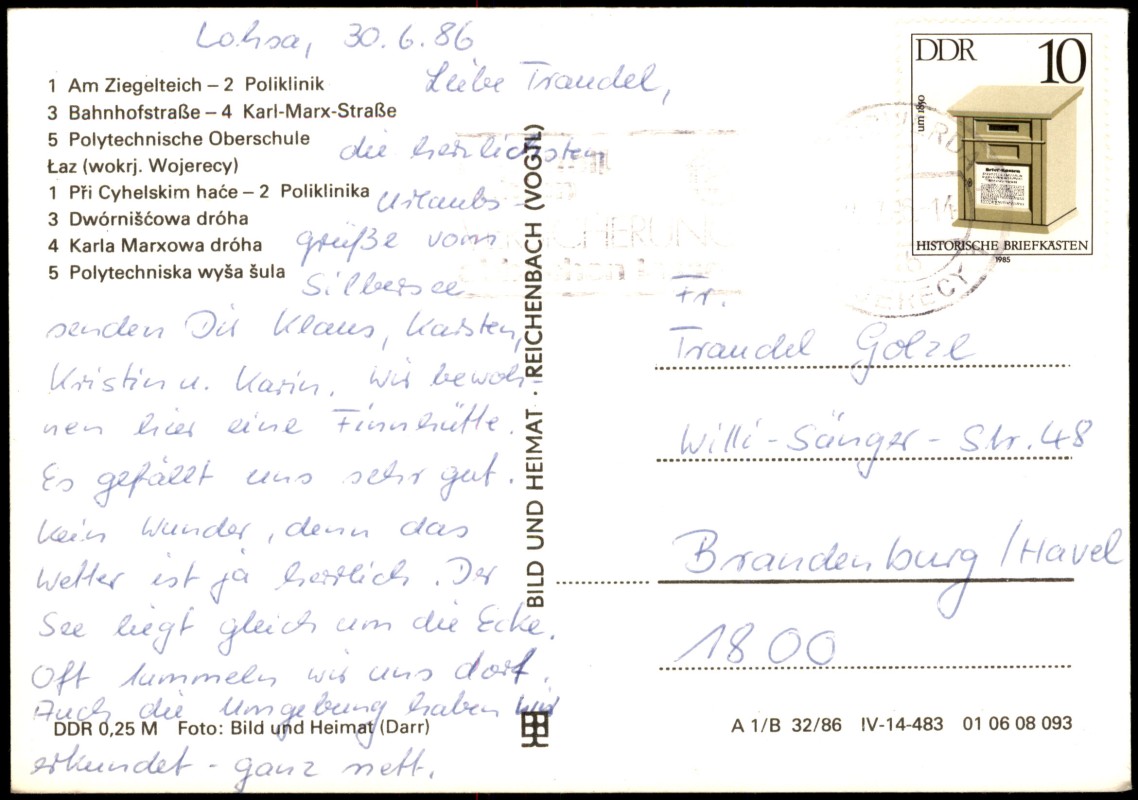 Lohsa, 30.6.86
Liebe Traudel,
die herzlichsten
Urlaubs-
grüße vom
Silbersee
senden Dir Klaus, Karsten,
Kristin u. Karin. Wir bewoh-
nen hier eine Finnhütte.
Es gefällt uns sehr gut.
Kein Wunder, denn das
Wetter ist ja herrlich. Der
See liegt gleich um die Ecke.
Oft tummeln wir uns dort.
Auch die Umgebung haben wir
erkundet - ganz nett.
1 Am Ziegelteich – 2 Poliklinik
3 Bahnhofstraße – 4 Karl-Marx-Straße
5 Polytechnische Oberschule
Łaz (wokrj. Wojerecy)
1 Při Cyhelskim haće – 2 Poliklinika
3 Dwórnišćowa dróha
4 Karla Marxowa dróha
5 Polytechniska wyša šula
DDR 0,25 M Foto: Bild und Heimat (Darr)
BILD UND HEIMAT · REICHENBACH (VOGTL)
DDR 10
um 1850
HISTORISCHE BRIEFKÄSTEN
1985
Fr.
Traudel Golze
Willi-Sänger-Str. 48
Brandenburg/Havel
1800
A 1/B 32/86 IV-14-483 01 06 08 093